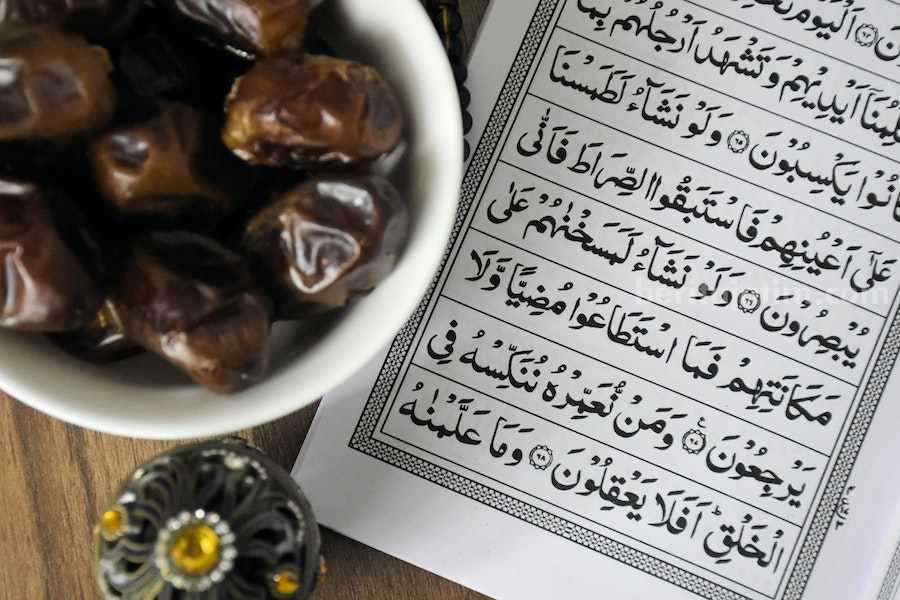 اَلْيَوْمَ
اَيْدِيْهِمْ وَتَشْهَدُ اَرْجُلُهُمْ بِمَا
كَانُوْا يَكْسِبُوْنَ ۝٦٥ وَلَوْ نَشَآءُ لَطَمَسْنَا
عَلٰٓى اَعْيُنِهِمْ فَاسْتَبَقُوا الصِّرَاطَ فَاَنّٰى
يُبْصِرُوْنَ ۝٦٦ وَلَوْ نَشَآءُ لَمَسَخْنٰهُمْ عَلٰى
مَكَانَتِهِمْ فَمَا اسْتَطَاعُوْا مُضِيًّا وَّلَا
يَرْجِعُوْنَ ۝٦٧ وَمَنْ نُّعَمِّرْهُ نُنَكِّسْهُ فِى
الْخَلْقِ ؕ اَفَلَا يَعْقِلُوْنَ ۝٦٨ وَمَا عَلَّمْنٰهُ
beritajatim.com